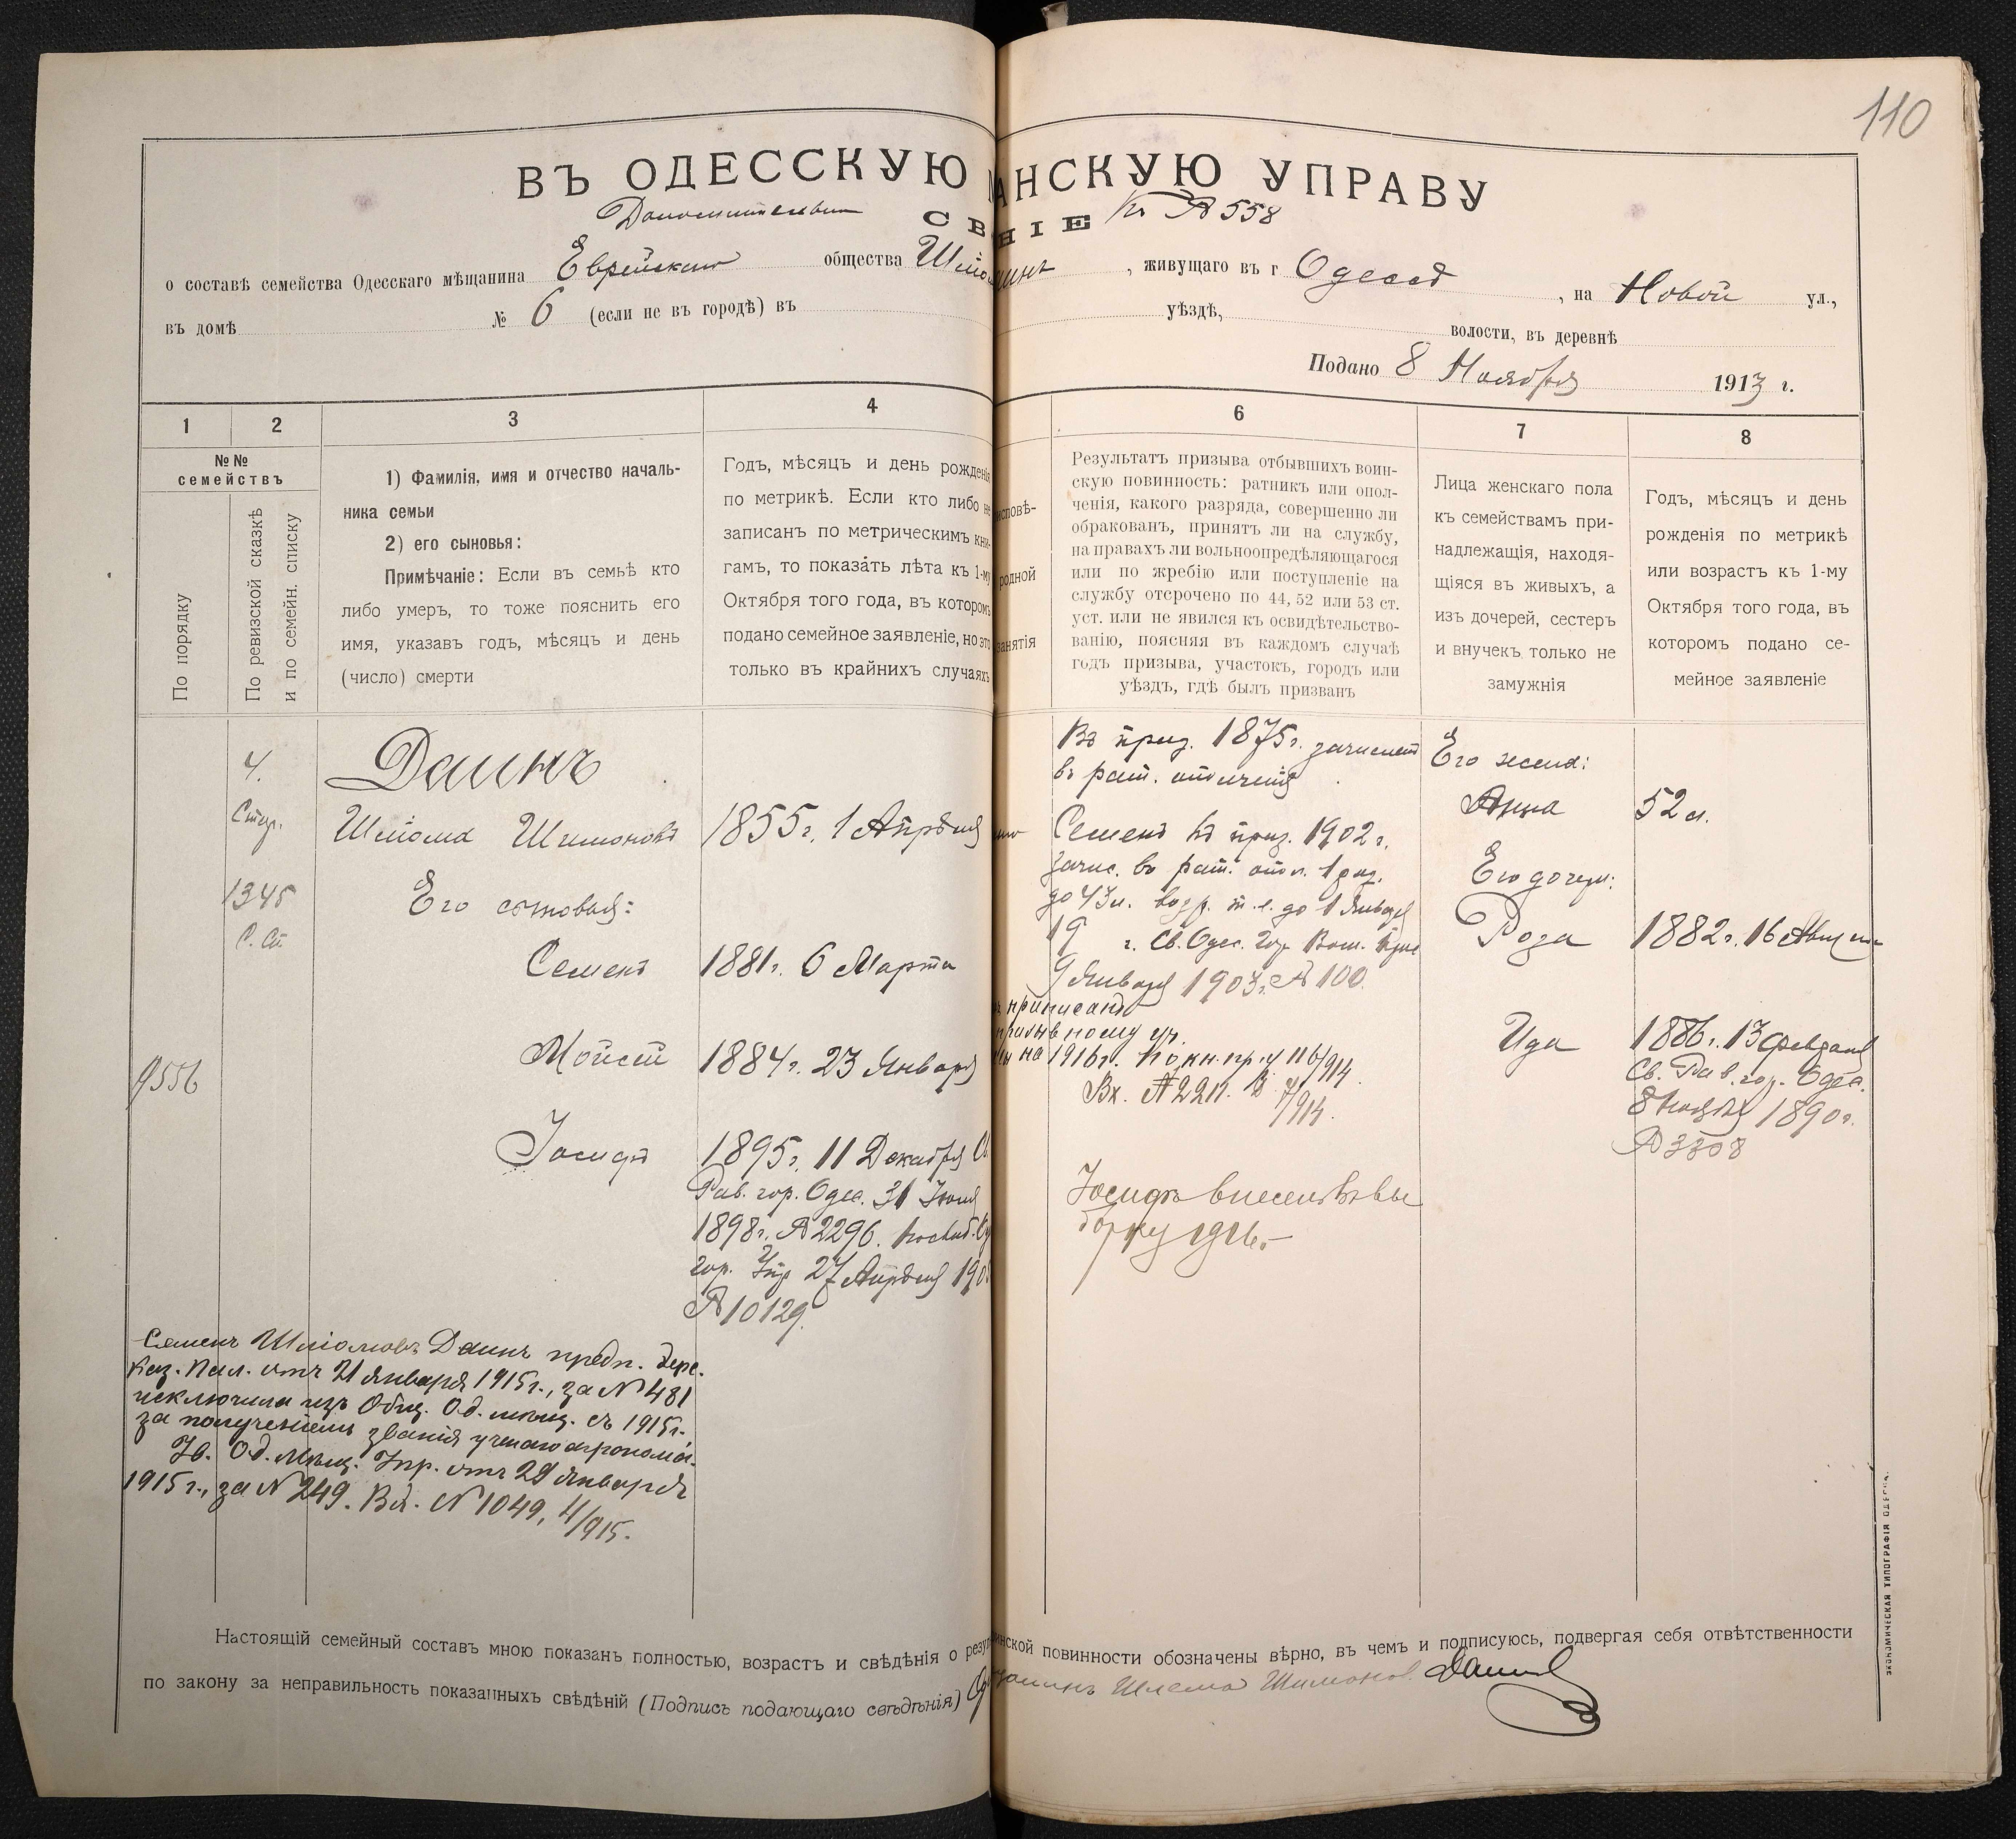 110
ВЪ ОДЕССКУЮ АНСКУЮ УПРАВУ
Дополнительное СВ НІЕ къ № 558
о составѣ семейства Одесскаго мѣщанина Еврейскаго общества Шліо , живущаго въ г Одессѣ , на Новой ул.,
въ домѣ № 6 (если не въ городѣ) въ уѣздѣ, волости, въ деревнѣ
Подано 8 Ноября 1913 г.
1 2 3 4 6 7 8
№№ семействъ
По порядку
По ревизской сказкѣ
и по семейн. списку
1) Фамилія, имя и отчество началь-
ника семьи
2) его сыновья:
Примѣчаніе: Если въ семьѣ кто
либо умеръ, то тоже пояснить его
имя, указавъ годъ, мѣсяцъ и день
(число) смерти
Годъ, мѣсяцъ и день рожденія
по метрикѣ. Если кто либо не
записанъ по метрическимъ кни-
гамъ, то показать лѣта къ 1-му
Октября того года, въ которомъ
подано семейное заявленіе, но это
только въ крайнихъ случаяхъ
исповѣ-
родной
занятія
Результатъ призыва отбывшихъ воин-
скую повинность: ратникъ или опол-
ченія, какого разряда, совершенно ли
обракованъ, принятъ ли на службу,
на правахъ ли вольноопредѣляющагося
или по жребію или поступленіе на
службу отсрочено по 44, 52 или 53 ст.
уст. или не явился къ освидѣтельство-
ванію, поясняя въ каждомъ случаѣ
годъ призыва, участокъ, городъ или
уѣздъ, гдѣ былъ призванъ
Лица женскаго пола
къ семействамъ при-
надлежащія, находя-
щіяся въ живыхъ, а
изъ дочерей, сестеръ
и внучекъ только не
замужнія
Годъ, мѣсяцъ и день
рожденія по метрикѣ
или возрастъ къ 1-му
Октября того года, въ
которомъ подано се-
мейное заявленіе
4.
Стар.
1345
С. Сп
9556
Даинъ
Шліома Шимоновъ 1855 г. 1 Апрѣля
Его сыновья:
Семенъ 1881 г. 6 Марта
Мойсей 1884 г. 23 Января
Іосифъ 1895 г. 11 Декабря Св
Рав. гор. Одес. 31 Іюля
1898 г. № 2296.
гор. Упр 27 Апрѣля 190
№ 10129.
Въ приз. 1875 г. зачисленъ
въ рат. ополченія
Семенъ въ приз. 1902 г.
зачис. въ рат. опол. 1 раз.
до 43 л. возр. т. е. до 1 Января
19 г. Св. Одес. Гор Воин. Прис
9 Января 1903 г. № 100.
приписанъ
призывному уч.
на 1916 г. по кн. пр. у 116/914.
Вх. № 2211. 7/914.
Іосифъ внесенъ въ вы
борку 1916.
Его жена:
Анна 52 л.
Его дочери:
Роза 1882 г. 16 Августа
Ида 1886 г. 13 февраля
Св. Рав. гор. Одес.
8 Ноября 1890 г.
№ 3308
Семенъ Шліомовъ Даинъ предп. Херс.
Каз. Пал. отъ 21 Января 1915 г., за № 481
исключенъ изъ Общ. Од. мѣщ. съ 1915 г.
за полученіемъ званія ученаго агронома.
Ув. Од. Мѣщ. Упр. отъ 29 Января
1915 г., за № 249. Вх. № 1049, 4/915.
Настоящій семейный составъ мною показанъ полностью, возрастъ и свѣдѣнія о резул инской повинности обозначены вѣрно, въ чемъ и подписуюсь, подвергая себя отвѣтственности
по закону за неправильность показанныхъ свѣдѣній (Подпись подающаго свѣдѣнія) Шлема Шимонов. Даинъ
ЭКОНОМИЧЕСКАЯ ТИПОГРАФІЯ ОДЕССА.